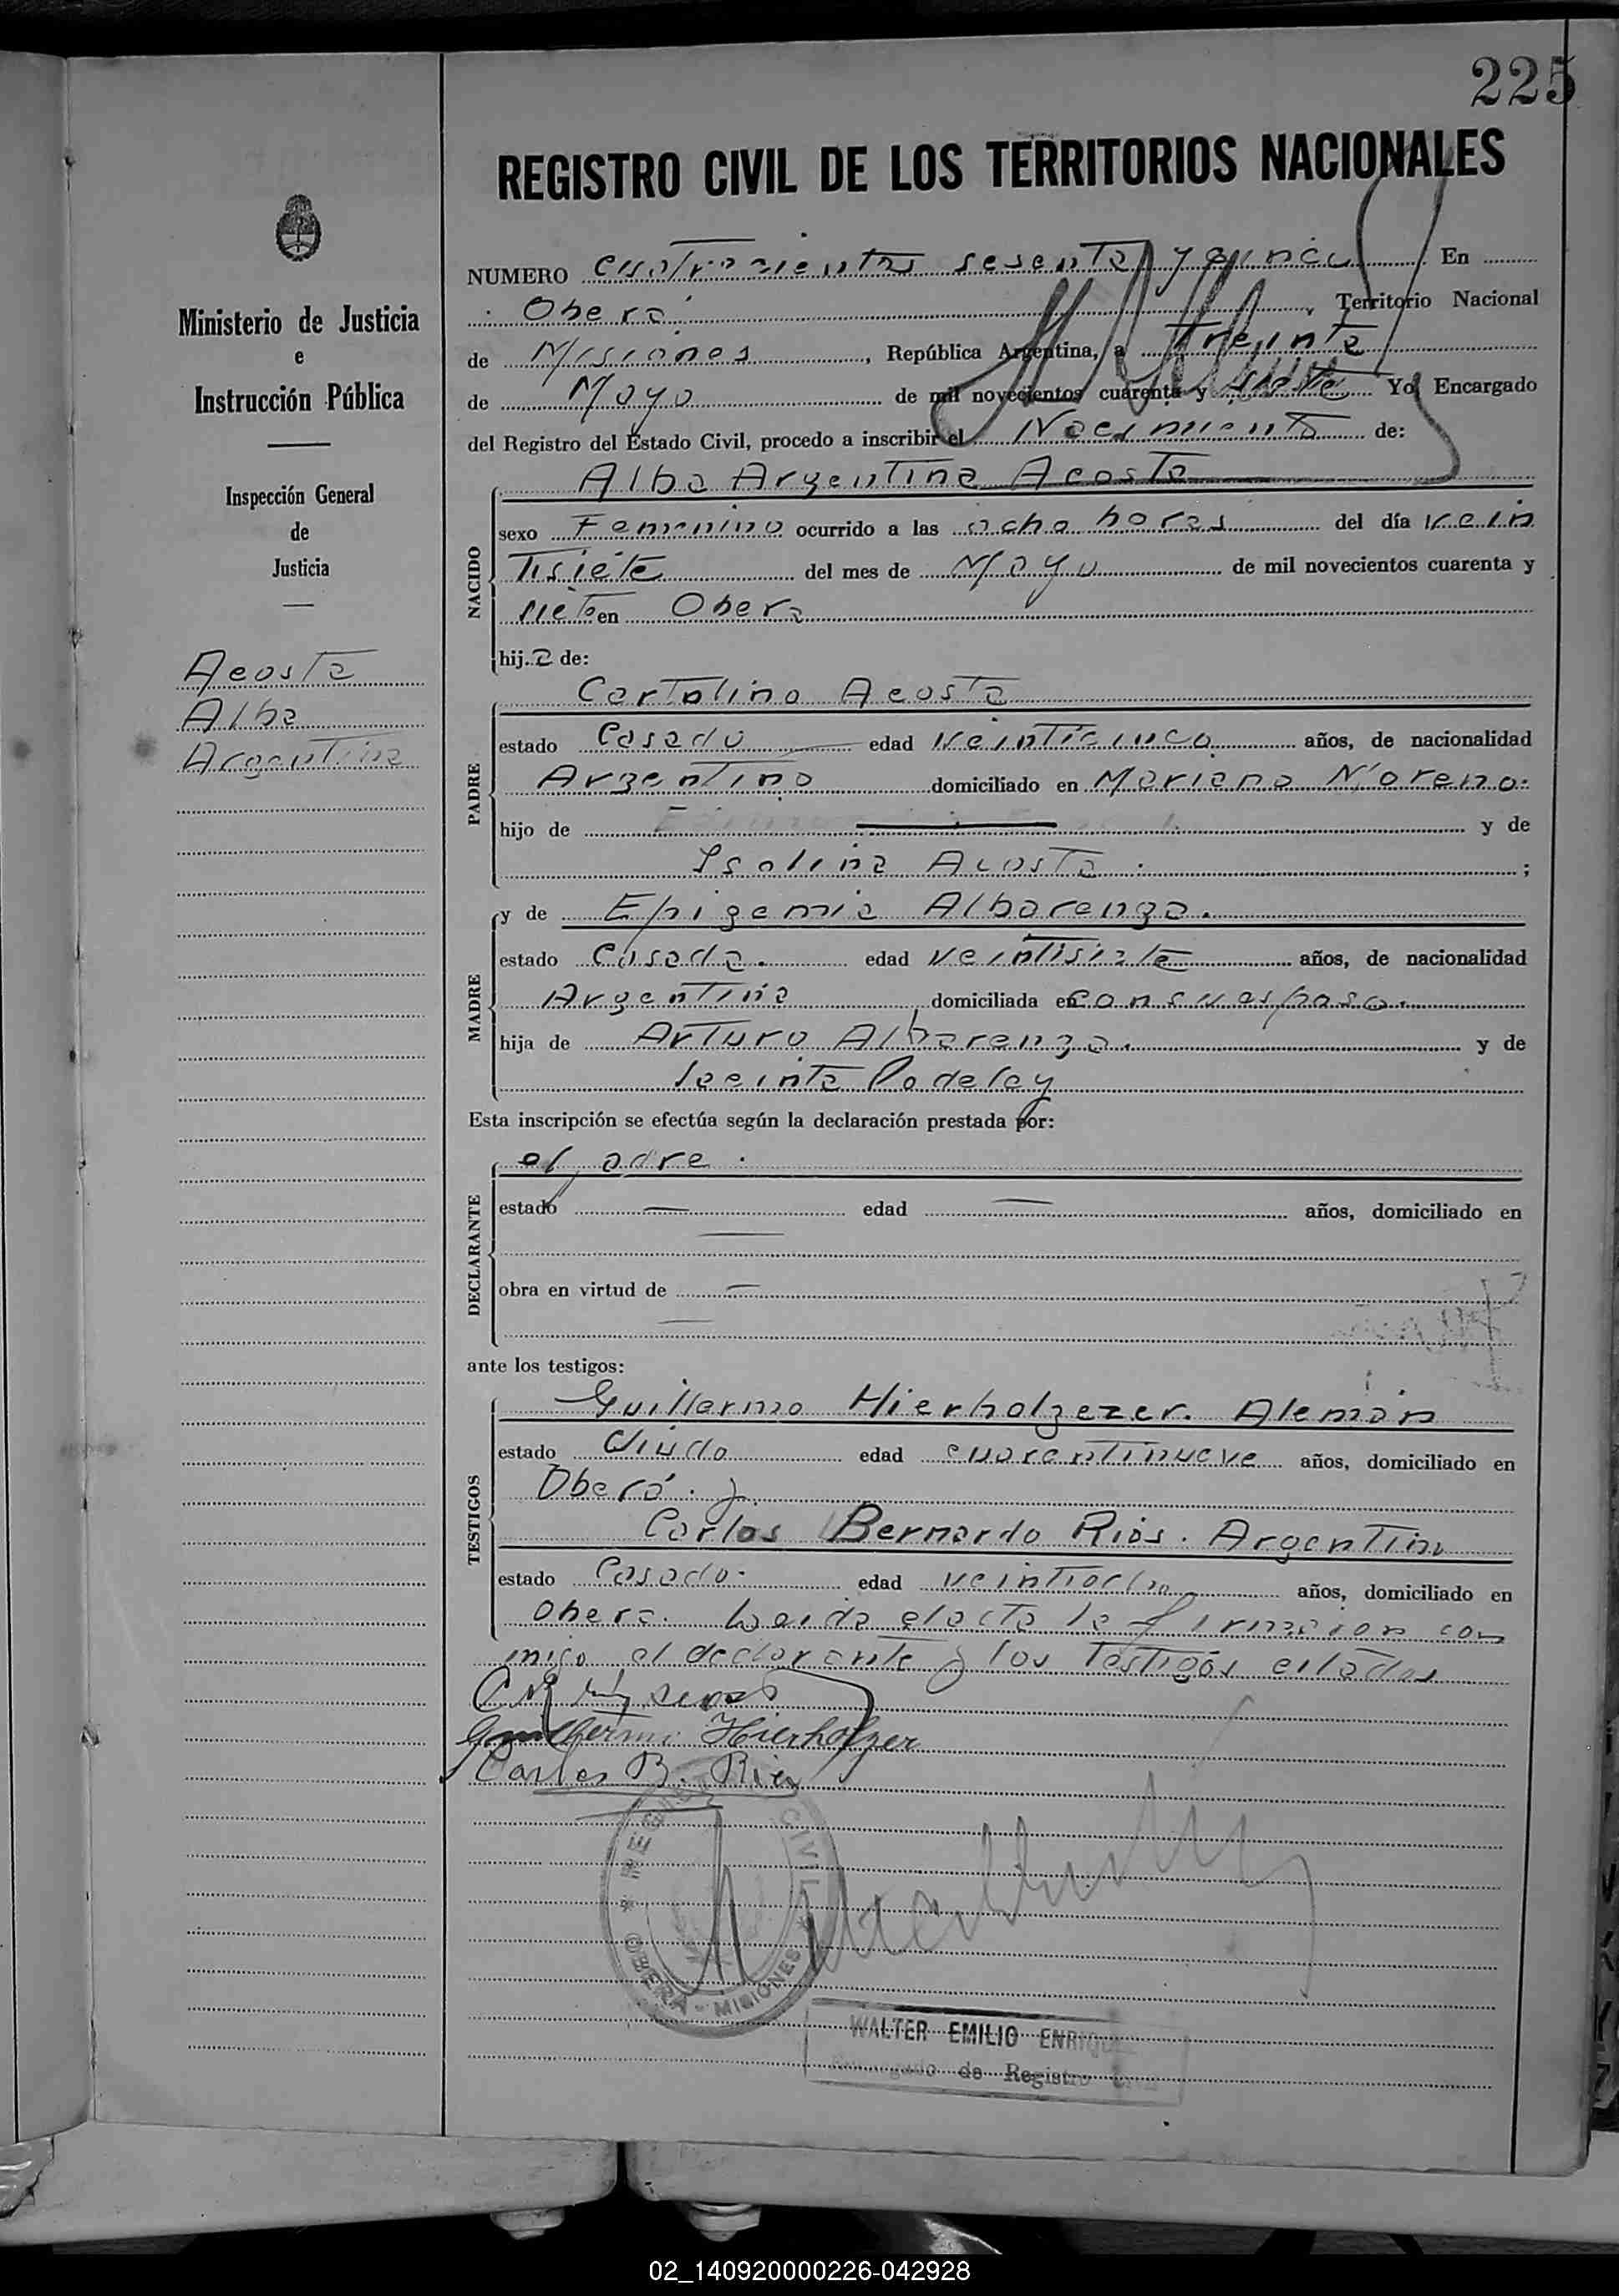 225
REGISTRO CIVIL DE LOS TERRITORIOS NACIONALES
Ministerio de Justicia
e
Instrucción Pública
Inspección General
de
Justicia
Acosta
Alba
Argentina
NUMERO cuatrocientos sesenta y cinco En
Oberá , Territorio Nacional
de Misiones , República Argentina, a treinta
de Mayo de mil novecientos cuarenta y siete Yo, Encargado
del Registro del Estado Civil, procedo a inscribir el Nacimiento de:
Alba Argentina Acosta
NACIDO
sexo Femenino ocurrido a las ocho horas del día vein
tisiete del mes de Mayo de mil novecientos cuarenta y
siete en Obera
hij a de:
PADRE
Acosta
estado Casado edad veinticinco años, de nacionalidad
Argentino domiciliado en Mariano Moreno.
hijo de y de
Isolina Acosta . ;
MADRE
y de Epigemia Albarenga.
estado Casada. edad veintisiete años, de nacionalidad
Argentina domiciliada en con su esposo.
hija de Arturo Albarenga. y de
Jacinta
Esta inscripción se efectúa según la declaración prestada por:
DECLARANTE
el padre .
estado — edad — años, domiciliado en
—
obra en virtud de —
—
ante los testigos:
TESTIGOS
Guillermo Hierholzezer. Alemán
estado Viudo edad cuarentinueve años, domiciliado en
Oberá. y
Carlos Bernardo Rios. Argentino
estado Casado. edad veintiocho años, domiciliado en
Obera. Leida el acta la firmaron con
migo el declarante y los testigos citados
Guillermo Hierholzer
Carlos B. Rios
REGISTRO CIVIL
OBERA - MISIONES
WALTER EMILIO ENRIQUE
Encargado de Registro Civil
02_140920000226-042928